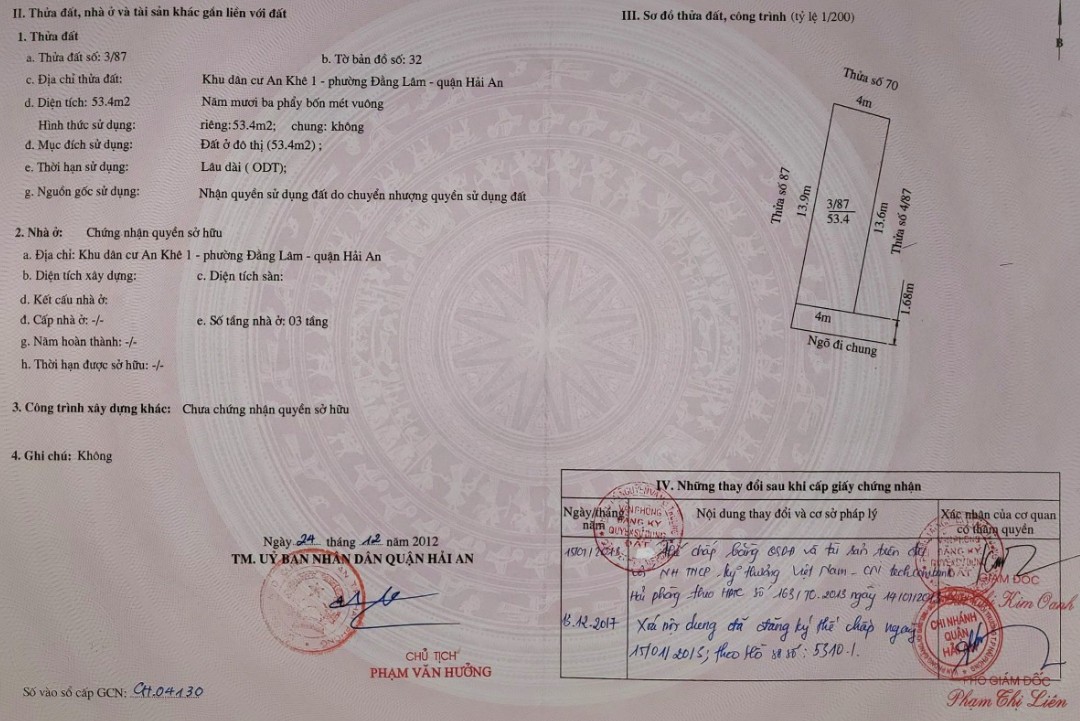 II. Thửa đất, nhà ở và tài sản khác gắn liền với đất
1. Thửa đất
a. Thửa đất số: 3/87 b. Tờ bản đồ số: 32
c. Địa chỉ thửa đất: Khu dân cư An Khê 1 - phường Đằng Lâm - quận Hải An
d. Diện tích: 53.4m2 Năm mươi ba phẩy bốn mét vuông
Hình thức sử dụng: riêng:53.4m2; chung: không
đ. Mục đích sử dụng: Đất ở đô thị (53.4m2) ;
e. Thời hạn sử dụng: Lâu dài ( ODT);
g. Nguồn gốc sử dụng: Nhận quyền sử dụng đất do chuyển nhượng quyền sử dụng đất
2. Nhà ở: Chứng nhận quyền sở hữu
a. Địa chỉ: Khu dân cư An Khê 1 - phường Đằng Lâm - quận Hải An
b. Diện tích xây dựng: c. Diện tích sàn:
d. Kết cấu nhà ở:
đ. Cấp nhà ở: -/- e. Số tầng nhà ở: 03 tầng
g. Năm hoàn thành: -/-
h. Thời hạn được sở hữu: -/-
3. Công trình xây dựng khác: Chưa chứng nhận quyền sở hữu
4. Ghi chú: Không
Ngày 24 tháng 12 năm 2012
TM. UỶ BAN NHÂN DÂN QUẬN HẢI AN
CHỦ TỊCH
PHẠM VĂN HƯỞNG
Số vào sổ cấp GCN: CH.04130
III. Sơ đồ thửa đất, công trình (tỷ lệ 1/200)
B
Thửa số 70
4m
Thửa số 87
13.9m
3/87
53.4
13.6m
Thửa số 4/87
1.68m
4m
Ngõ đi chung
IV. Những thay đổi sau khi cấp giấy chứng nhận
Ngày/tháng năm
Nội dung thay đổi và cơ sở pháp lý
Xác nhận của cơ quan có thẩm quyền
VĂN PHÒNG
ĐĂNG KÝ
QUYỀN SỬ DỤNG
ĐẤT
15/01/2013 Thế chấp bằng QSDĐ và tài sản trên đất
NH TMCP kỹ thương Việt Nam - CN techcombank
Hải phòng theo HĐTC số 163/70.2013 ngày 14/01/2013
GIÁM ĐỐC
Kim Oanh
13.12.2017 Xoá nội dung đã đăng ký thế chấp ngày
15/01/2013; theo Hồ sơ số: 5310.
CHI NHÁNH
QUẬN
HẢI AN
PHÓ GIÁM ĐỐC
Phạm Thị Liên